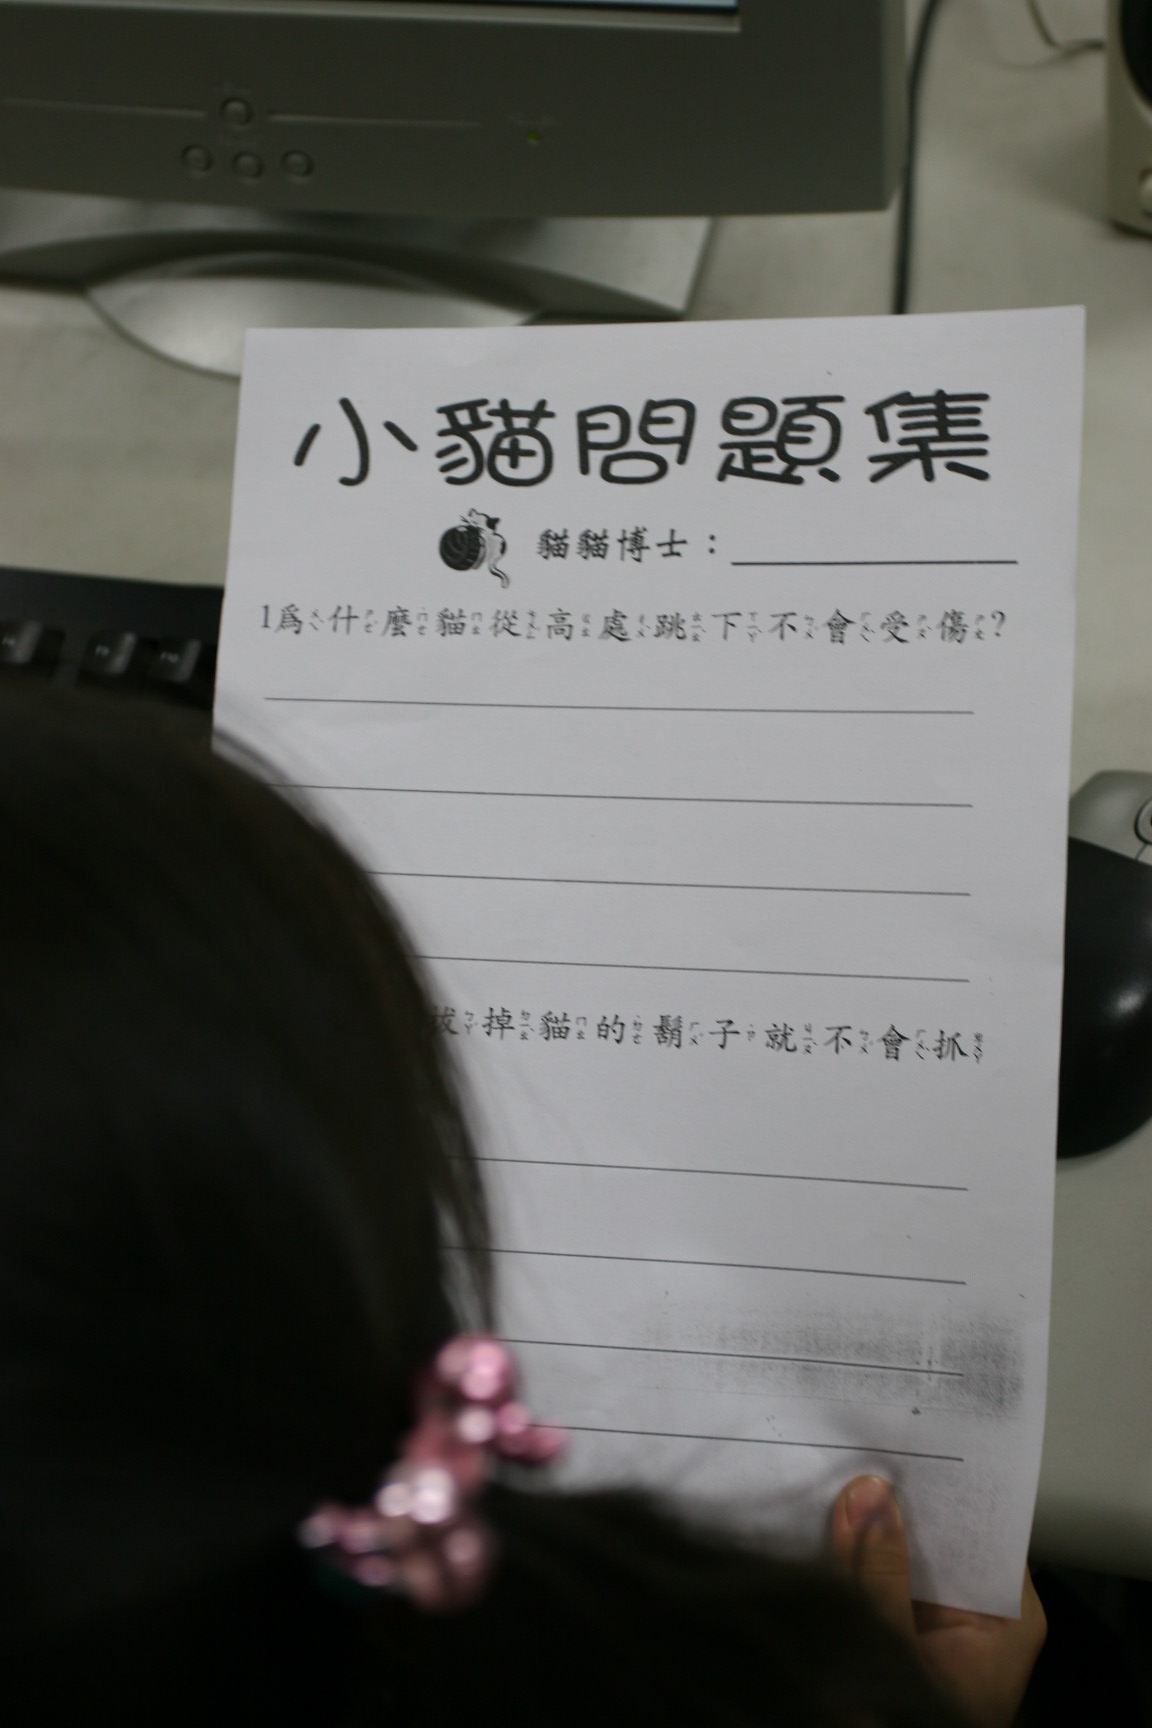 小貓問題集
貓貓博士：
1為什麼貓從高處跳下不會受傷?
拔掉貓的鬍子就不會抓